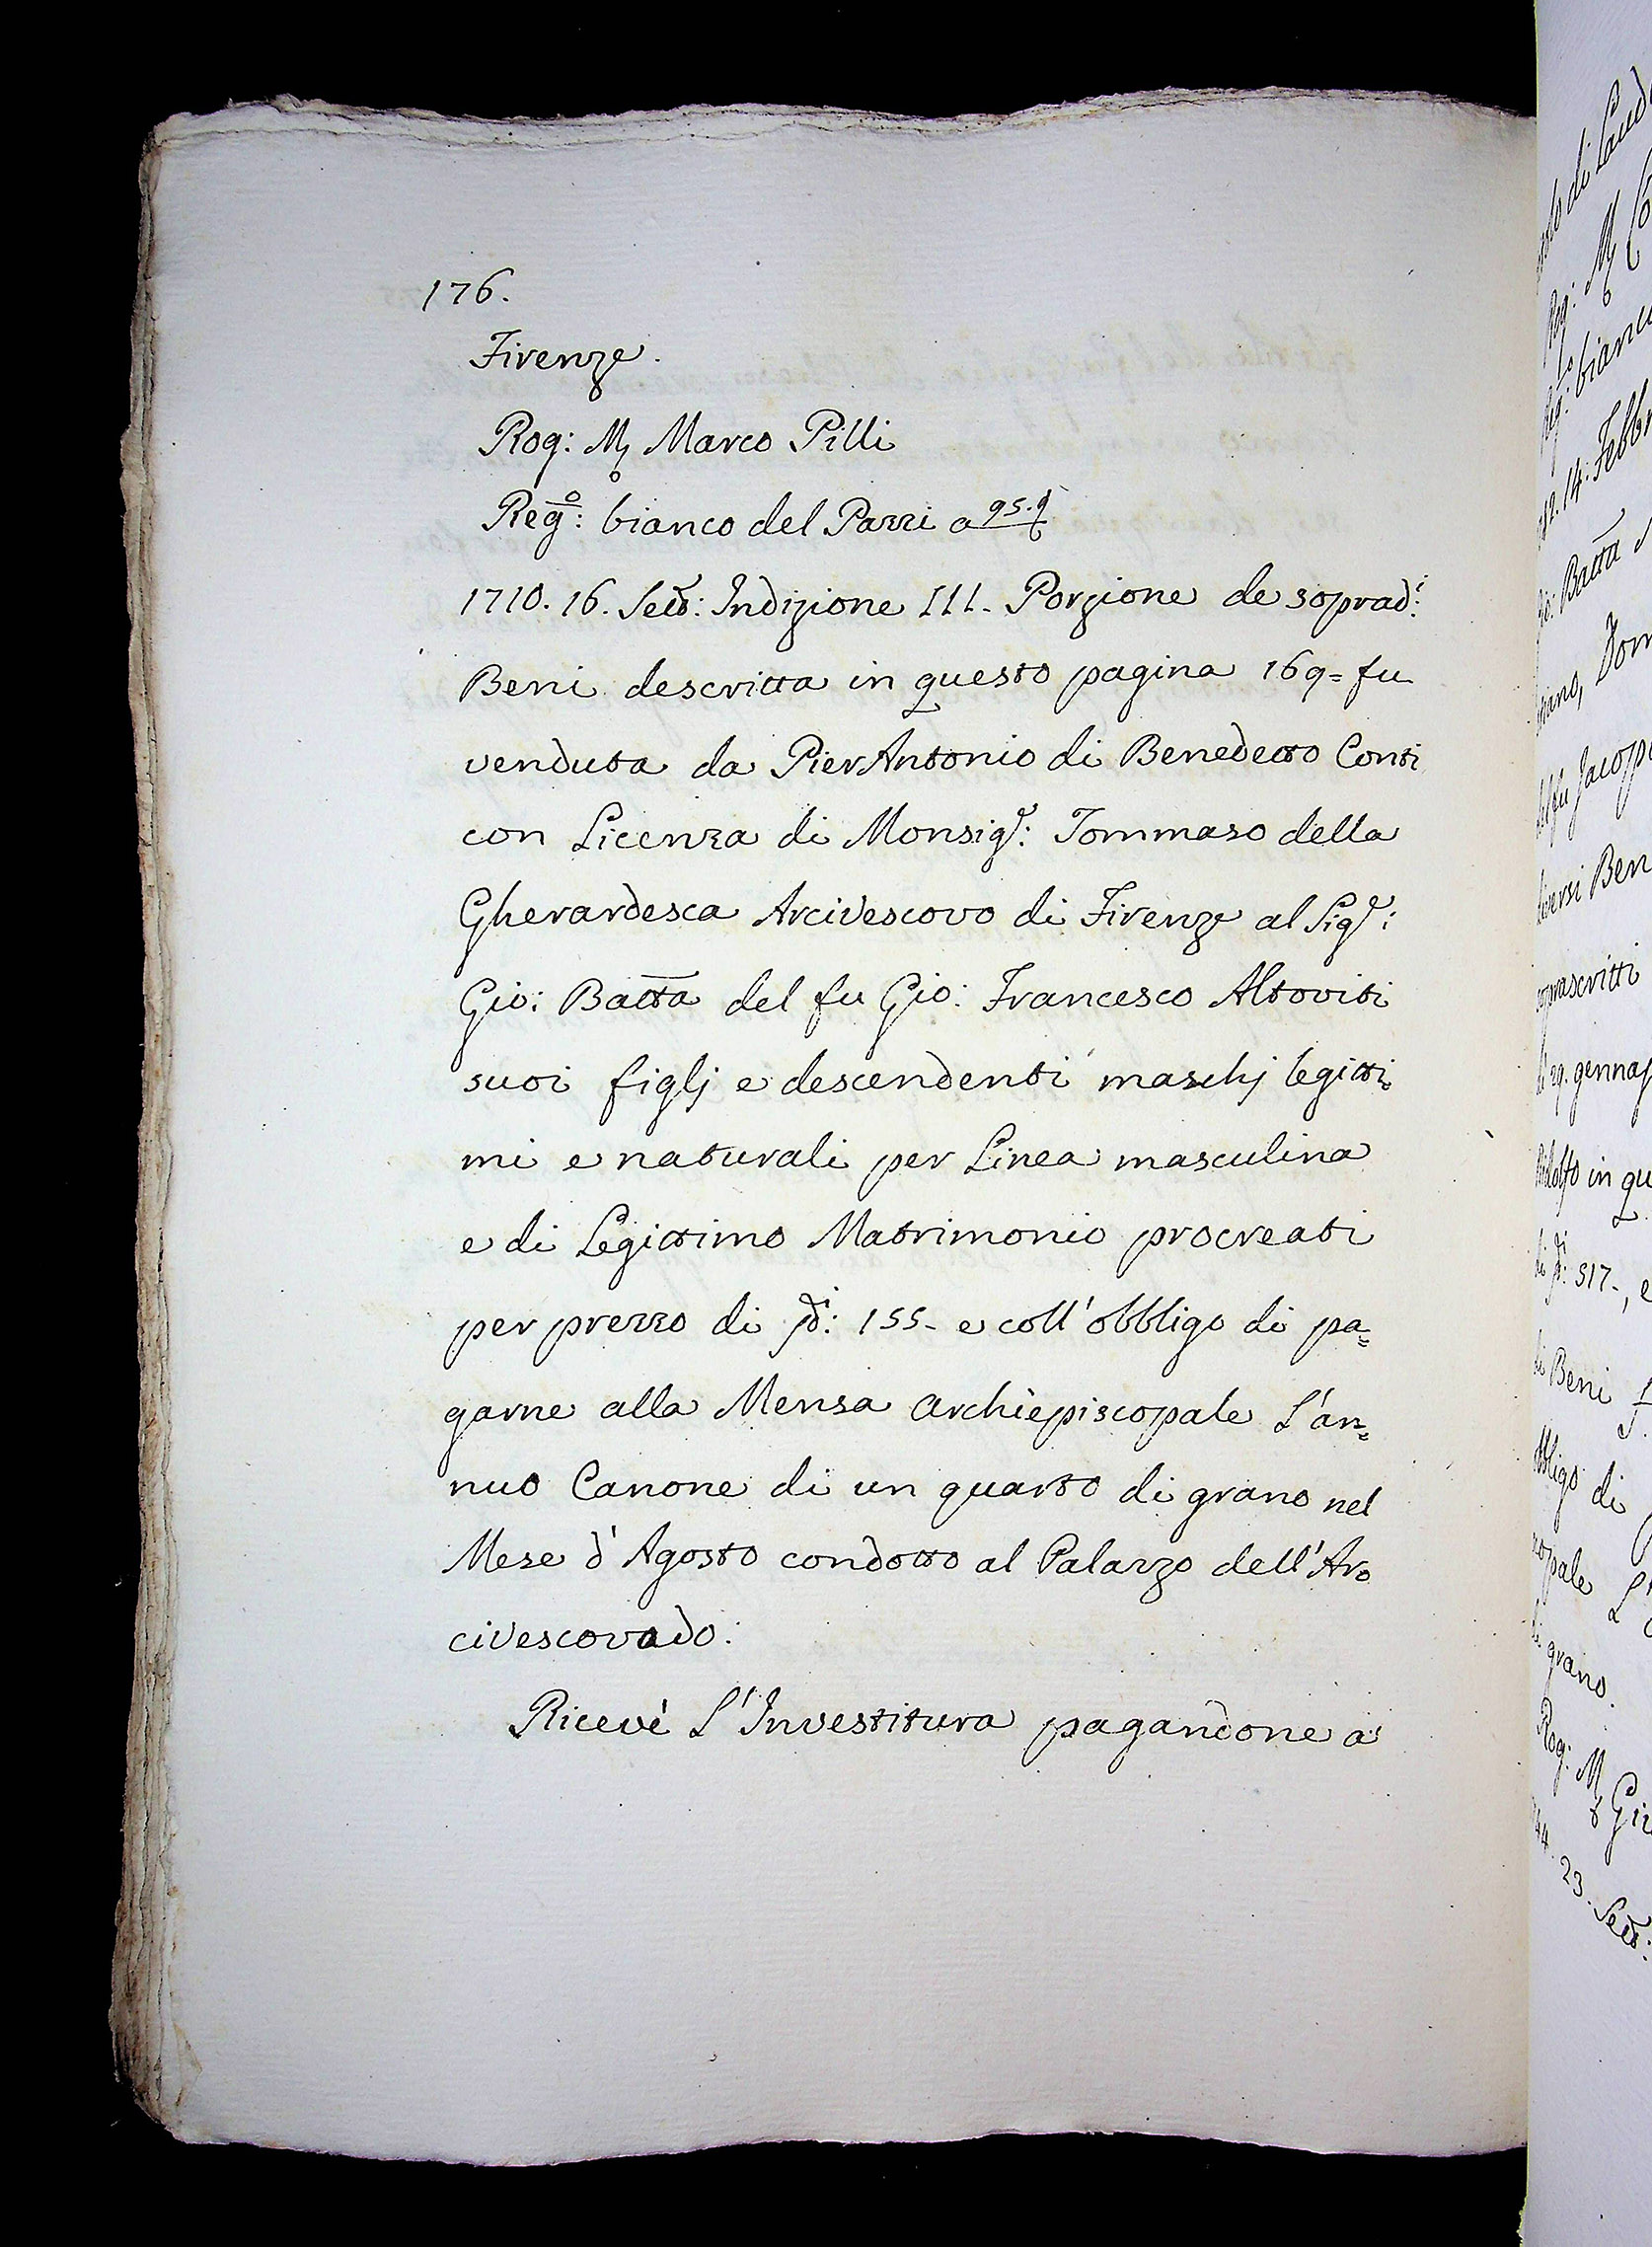 176.
Firenze.
Rog: Mo Marco Pilli
Rego: bianco del Pazzi a 95.
1710. 16. Sett: Indizione III. Porzione de sopradi:
Beni descritta in questo pagina 169= fu
venduta da PierAntonio di Benedetto Conti
con Licenza di Monsigr: Tommaso della
Gherardesca Arcivescovo di Firenze al Sigr:
Gio: Batta del fu Gio: Francesco Altoviti
suoi figlj e descendenti maschj legitti=
mi e naturali per Linea masculina
e di Legittimo Matrimonio procreati
per prezzo di 155- e coll'obbligo di pa=
garne alla Mensa Archiepiscopale L'an=
nuo Canone di un quarto di grano nel
Mese d'Agosto condotto al Palazzo dell'Ar=
civescovado:
Ricevè L'Investitura pagandone a
di Laud
Rog: M
bianc
14. Febbr
Gio: Batta
Dom
del fu Jacop
diversi Ben
soprascritti
29. gennaj
in qu
di 517-, e
Beni
obbligo di
copale L'
di grano.
Rog: M Gi
44. 23. Sett: